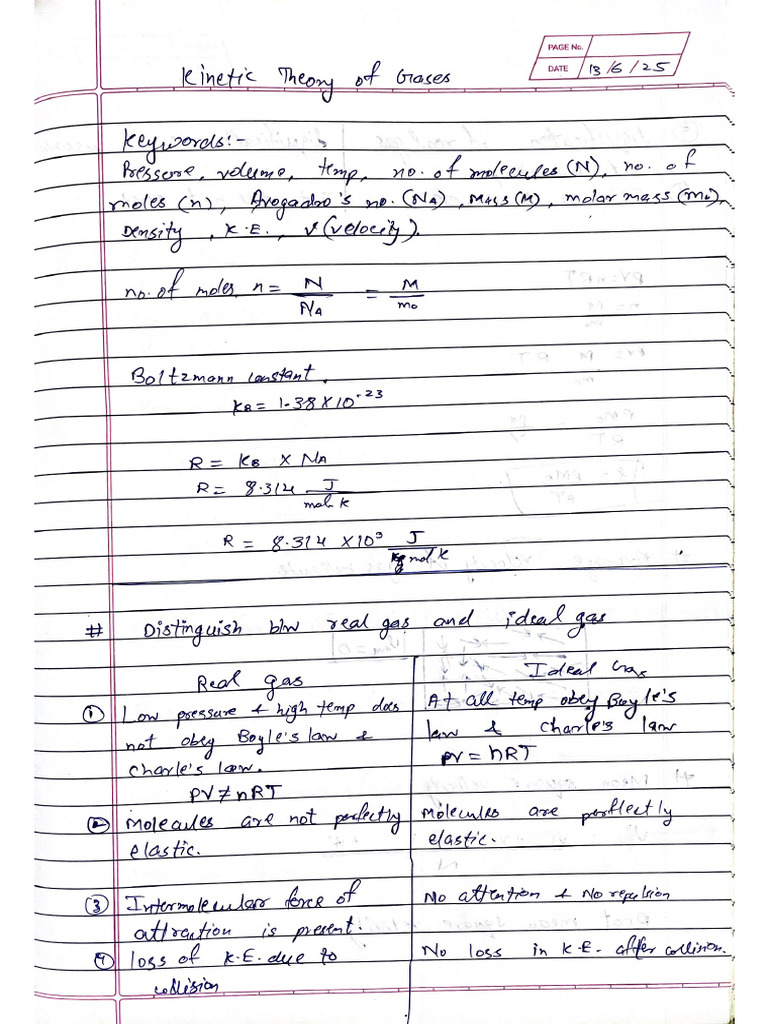 PAGE No.
DATE 13/6/25
Kinetic Theory of Gases
Keywords:-
Pressure, volume, temp, no. of molecules (N), no. of
moles (n), Avogadro's no. (NA), Mass (M), molar mass (m₀),
Density, K.E., v (velocity).
no. of moles n = N/NA = M/m₀
Boltzmann constant.
KB = 1.38 X 10⁻²³
R = KB X NA
R = 8.314 J/mol. K
R = 8.314 X10³ J/kg mol. K
# Distinguish b/w real gas and ideal gas
Real gas
① Low pressure & high temp does
not obey Boyle's law &
Charle's law.
PV ≠ nRT
② Molecules are not perfectly
elastic.
③ Intermolecular force of
attraction is present.
④ loss of K.E. due to
collision
Ideal Gas
At all temp obey Boyle's
law & Charle's law
PV = nRT
Molecules are perflectly
elastic.
No attention & No repulsion
No loss in K.E. after collision.